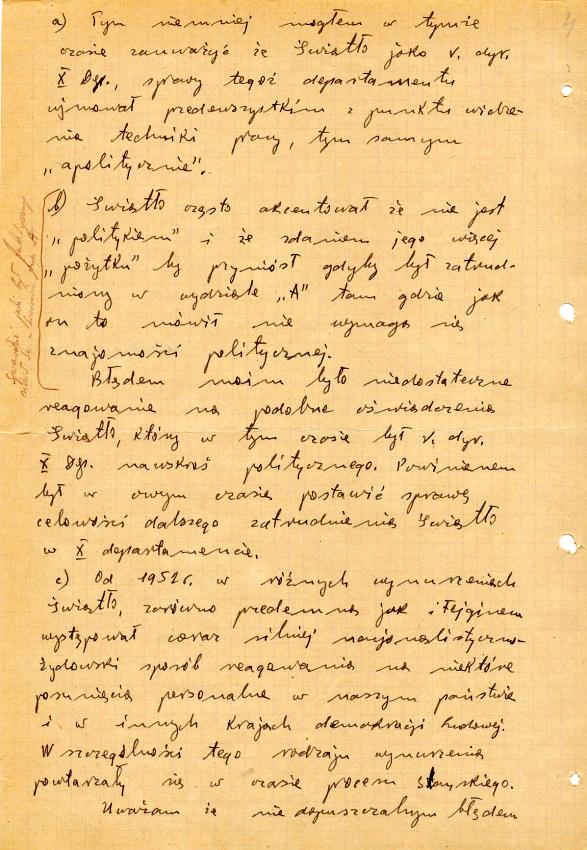 4
a) Tym niemniej mogłem w tymże
czasie zauważyć że Światło jako v. dyr.
X Dep., sprawy tegoż departamentu
ujmował przedewszystkim z punktu widze-
nia techniki pracy, tym samym
„apolitycznie”.
b) Światło często akcentował że nie jest
„politykiem” i że zdaniem jego więcej
„pożytku” by przyniósł gdyby był zatrud-
niony w wydziale „A” tam gdzie jak
on to mówił nie wymaga się
znajomości politycznej.
Błędem moim było niedostateczne
reagowanie na podobne oświadczenia
Światło, który w tym czasie był v. dyr.
X Dep. nawskroś politycznego. Powinienem
był w owym czasie postawić sprawę
celowości dalszego zatrudnienia Światło
w X departamencie.
c) Od 1952 r. w różnych wynurzeniach
Światło, zarówno przedemną jak i Fejginem
występował coraz silniej nacjonalistyczno-
żydowski sposób reagowania na niektóre
posunięcia personalne w naszym państwie
i w innych krajach demokracji ludowej.
W szczególności tego rodzaju wynurzenia
powtarzały się w czasie procesu Slanskiego.
Uważam że nie dopuszczalnym błędem